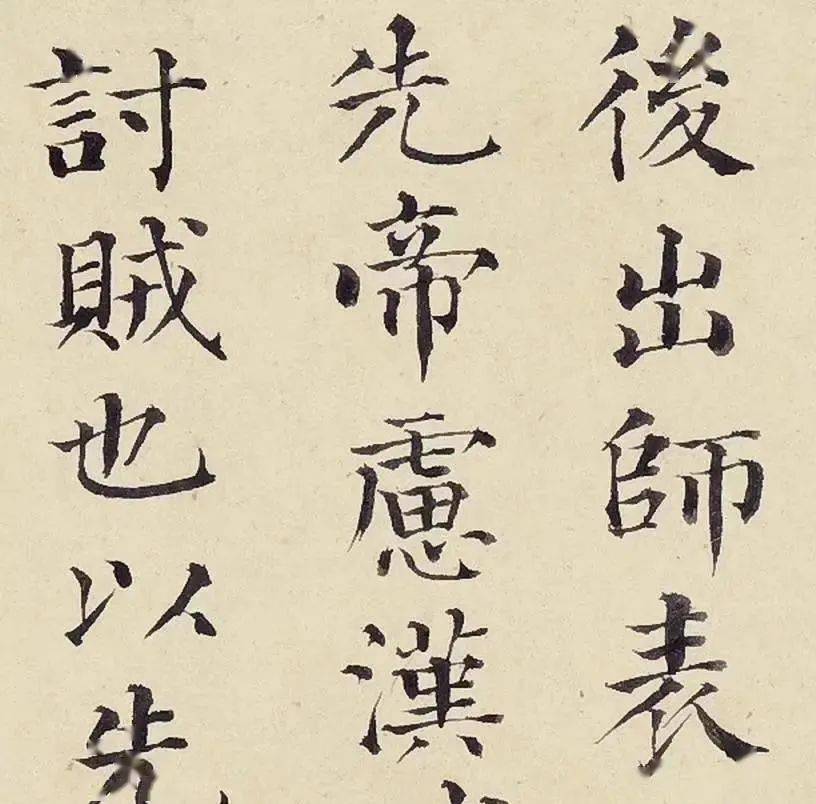 後出師表
先帝慮漢
討賊也以先